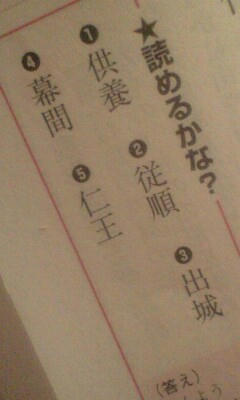 ★読めるかな?
❶供養
❷従順
❸出城
❹幕間
❺仁王
(答え)